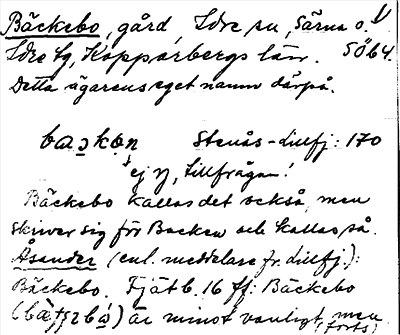 Bäckebo, gård, Idre sn, Särna o.
Idre tg, Kopparbergs län. SÖ64.
Detta ägarens eget namn därpå.
backǝn Stenås-dillfj: 170
ej ŋ, tillfrågan!
Bäckebo kallas det också, men
skriver sig för Backen och kallas så.
Åsander (enl. meddelare fr. dillfj.):
Bäckebo. Fjätb. 16 ff: Bäckebo
är minst vanligt, men
forts,